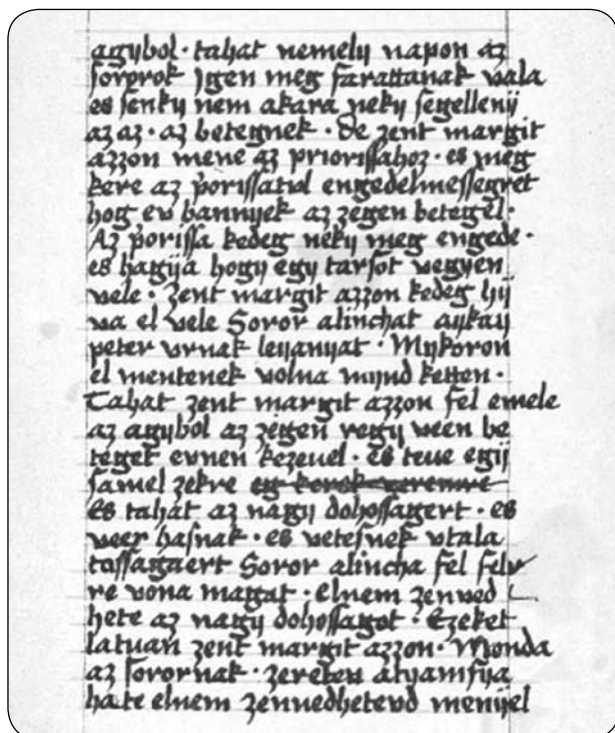 agÿbol · tahat nemelÿ napon az
ſororok Jgen meg farattanak vala
es ſenkÿ nem akara nekÿ ſegellenÿ
az az · az betegnek · De zent margit
azzon mene az prioriſſahoz · es meg
kere az poriſſatwl engedelmeſſegret
hog ev bannÿek az zegen betegel ·
Az poriſſa kedeg nekÿ meg engede ·
es hagÿa hogÿ egÿ tarſot vegÿen
vele · Zent margit azzon kedeg hÿ
va el vele Soror alinchat aÿkaÿ
peter vrnak leÿanÿat · Mÿkoron
el mentenek volna mÿnd ketten ·
Tahat zent margit azzon fel emele
az agÿbol az zegen vegÿ veen be
teget evnen kezeuel · es teue egÿ
ſamel zekre
es tahat az nagÿ dohoſſagert · es
veer haſnak · es veteſnek vtala
toſſagaert Soror alincha fel felv
re vona magat · elnem zenved
hete az nagÿ dohoſſagot · Ezeket
latuan zent margit azzon · Monda
az ſorornak · zereten atÿamfÿa
ha te elnem zenvedhetevd menÿel